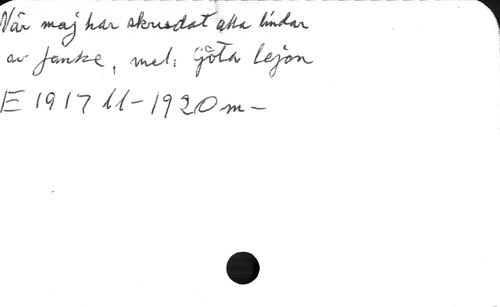 När maj har skrudat alla lindar
av Janze, mel: Göta Lejon
E 1917 11-1920 m-